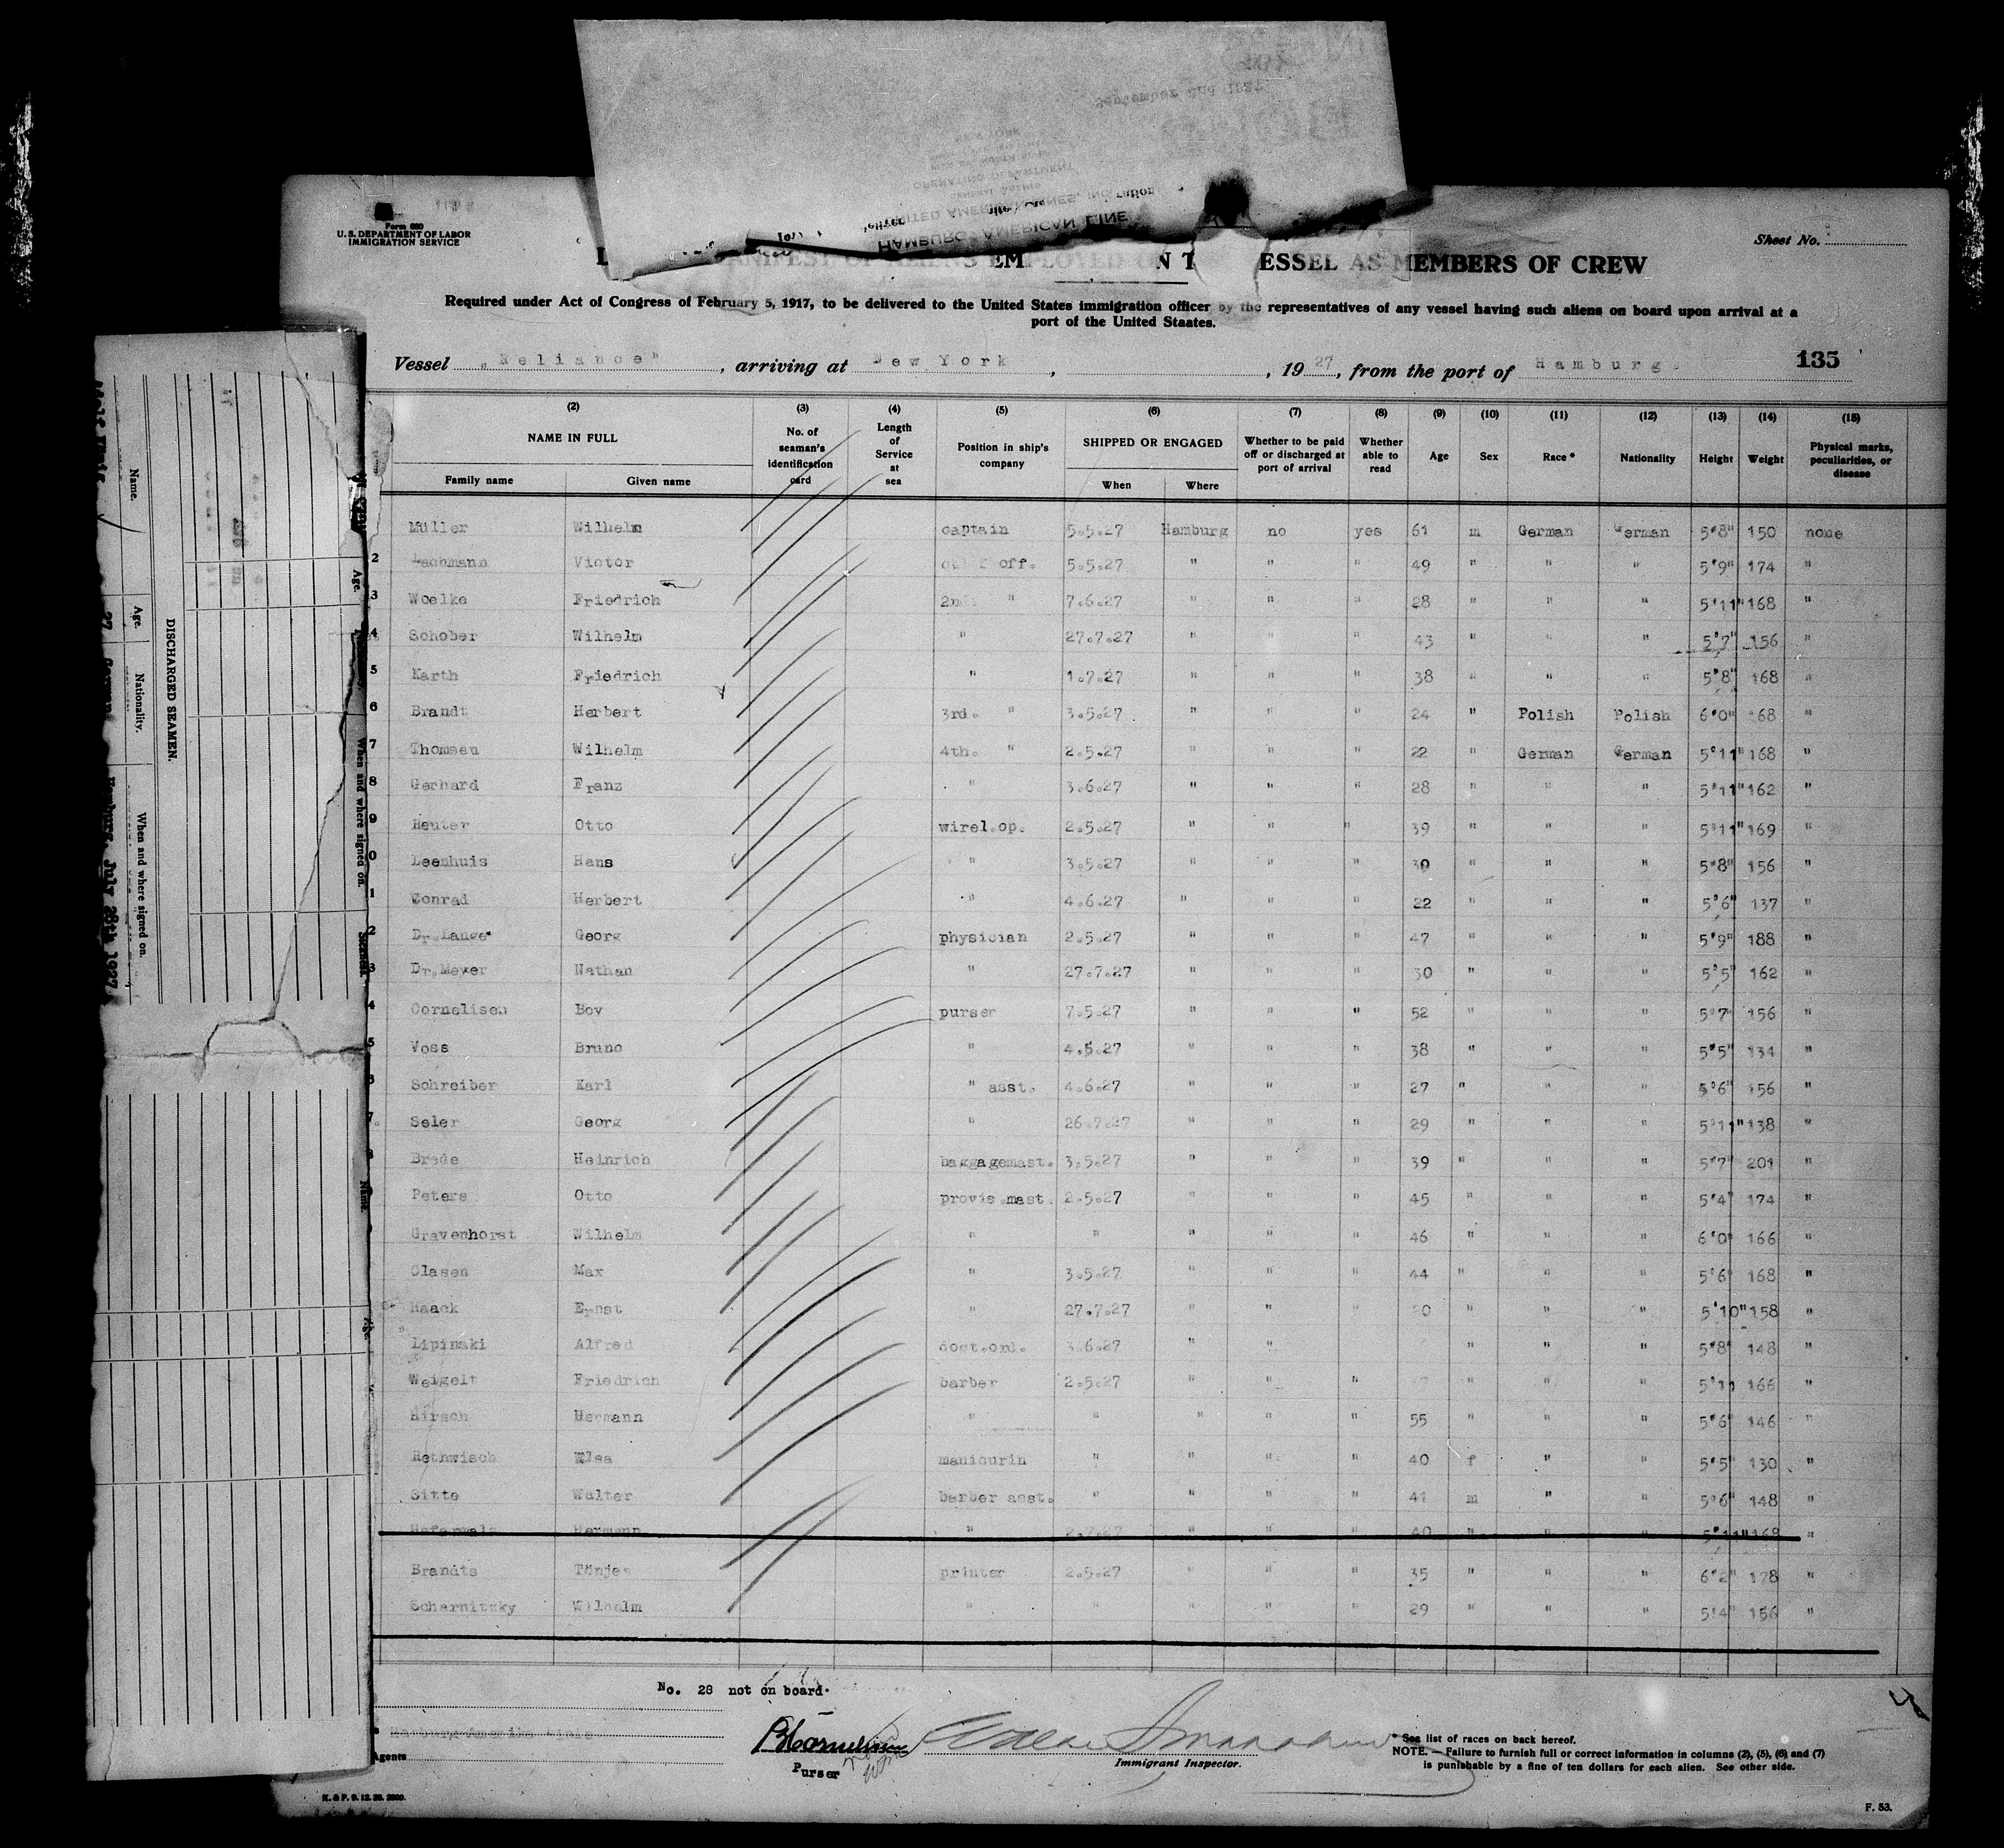 September 2nd 1927
NEW YORK
OPERATING DEPARTMENT
General Agents
UNITED AMERICAN LINES, INC.
HAMBURG-AMERICAN LINE
Form 680
U. S. DEPARTMENT OF LABOR
IMMIGRATION SERVICE
Sheet No.
ESSEL AS MEMBERS OF CREW
Required under Act of Congress of February 5, 1917, to be delivered to the United States immigration officer by the representatives of any vessel having such aliens on board upon arrival at a
port of the United Staates.
Vessel „Reliance", arriving at New York, , 1927, from the port of Hamburg. 135
(2) (3) (4) (5) (6) (7) (8) (9) (10) (11) (12) (13) (14) (15)
NAME IN FULL No. of seaman's identification card Length of Service at sea Position in ship's company SHIPPED OR ENGAGED Whether to be paid off or discharged at port of arrival Whether able to read Age Sex Race* Nationality Height Weight Physical marks, peculiarities, or disease
Family name Given name When Where
Müller Wilhelm captain 5.5.27 Hamburg no yes 61 m German German 5'8" 150 none
2 Lachmann Victor off. 5.5.27 " " " 49 " " " 5'9" 174 "
3 Woelke Friedrich 2nd " 7.6.27 " " " 28 " " " 5'11" 168 "
4 Schober Wilhelm " 27.7.27 " " " 43 " " " 5'7" 156 "
5 Karth Friedrich " 1.7.27 " " " 38 " " " 5'8" 168 "
6 Brandt Herbert 3rd. " 3.5.27 " " " 24 " Polish Polish 6'0" 168 "
7 Thomsen Wilhelm 4th. " 2.5.27 " " " 22 " German German 5'11" 168 "
8 Gerhard Franz " 3.6.27 " " " 28 " " " 5'11" 162 "
9 Heuter Otto wirel.op. 2.5.27 " " " 39 " " " 5'11" 169 "
0 Leenhuis Hans " 3.5.27 " " " 30 " " " 5'8" 156 "
1 Conrad Herbert " 4.6.27 " " " 22 " " " 5'6" 137 "
2 Dr.Lange Georg physician 2.5.27 " " " 47 " " " 5'9" 188 "
3 Dr.Meyer Nathan " 27.7.27 " " " 30 " " " 5'5" 162 "
4 Cornelisen Boy purser 7.5.27 " " " 52 " " " 5'7" 156 "
5 Voss Bruno " 4.5.27 " " " 38 " " " 5'5" 134 "
6 Schreiber Karl " asst. 4.6.27 " " " 27 " " " 5'6" 156 "
7 Seler Georg " 26.7.27 " " " 29 " " " 5'11" 138 "
8 Brede Heinrich baggagemast. 3.5.27 " " " 39 " " " 5'7" 201 "
Peters Otto provis.mast. 2.5.27 " " " 45 " " " 5'4" 174 "
Gravenhorst Wilhelm " " " " " 46 " " " 6'0" 166 "
Clasen Max " 3.5.27 " " " 44 " " " 5'6" 168 "
Haack Ernst " 27.7.27 " " " " " " 5'10" 158 "
Lipinski Alfred doct.ord. 3.6.27 " " " " " 5'8" 148 "
Weigelt Friedrich barber 2.5.27 " " " " " " 5'11 166 "
Hirsch Hermann " " " " " 55 " " " 5'6" 146 "
Hethwisch Elsa manicurin " " " " 40 f " " 5'5" 130 "
Sitte Walter barber asst. " " " " 41 m " " 5'6" 148 "
Hermann " 2.7.27 " " " 40 " " " 5'11" 168 "
Brandts Tönjes printer 2.5.27 " " " 35 " " " 6'2" 178 "
Scharnitzky Wilhelm " " " " " 29 " " " 5'4" 156 "
No. 28 not on board.
Hamburg-Amerika Linie
Agents
Purser
Immigrant Inspector.
* See list of races on back hereof.
NOTE. — Failure to furnish full or correct information in columns (2), (5), (6) and (7)
is punishable by a fine of ten dollars for each alien. See other side.
K. & P. 9. 12. 26. 2000.
F. 53.
DISCHARGED SEAMEN.
Name. Age. Nationality. When and where signed on.
27 Hamburg, July 28th 1927
Name. Age. When and where signed on.